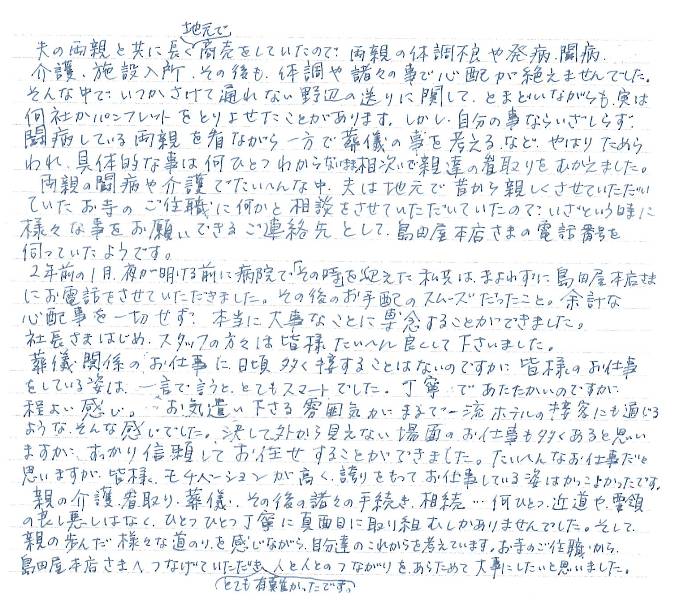 地元で
夫の両親と共に長く商売をしていたので、両親の体調不良や発病、闘病、
介護、施設入所、その後も、体調や諸々の事で心配が絶えませんでした。
そんな中で、いつかさけて通れない野辺の送りに関して、とまどいながらも、実は
何社かパンフレットをとりよせたことがあります。しかし、自分の事ならいざしらず、
闘病している両親を看ながら一方で葬儀の事を考える、など、やはりためら
われ、具体的な事は何ひとつわからない 相次いで親達の看取りをむかえました。
両親の闘病や介護でたいへんな中、夫は地元で昔から親しくさせていただい
ていたお寺のご住職に何かと相談をさせていただいていたので、いざという時に
様々な事をお願いできるご連絡先として、島田屋本店さまの電話番号を
伺っていたようです。
2年前の1月、夜が明ける前に病院で「その時」を迎えた私共は、まよわずに島田屋本店さま
にお電話をさせていただきました。その後のお手配のスムーズだったこと。余計な
心配事を一切せず、本当に大事なことに専念することができました。
社長さまはじめ、スタッフの方々は皆様たいへん良くして下さいました。
葬儀関係のお仕事に、日頃多く接することはないのですが、皆様のお仕事
をしている姿は、一言で言うと、とてもスマートでした。丁寧であたたかいのですが、
程よい感じ。お気遣い下さる雰囲気がまるで一流ホテルの接客にも通じる
ような、そんな感じでした。決して外から見えない場面のお仕事も多くあると思い
ますが、しっかり信頼してお任せすることができました。たいへんなお仕事だと
思いますが、皆様、モチベーションが高く、誇りをもってお仕事している姿はかっこよかったです。
親の介護、看取り、葬儀、その後の諸々の手続き、相続…何ひとつ、近道や、要領
の良し悪しはなく、ひとつひとつ丁寧に真面目に取り組むしかありませんでした。そして、
親の歩んだ様々な道のりを感じながら、自分達のこれからを考えています。お寺のご住職から、
島田屋本店さまへつなげていただき、人と人とのつながりを、あらためて大事にしたいと思いました。
とても有難かったです。